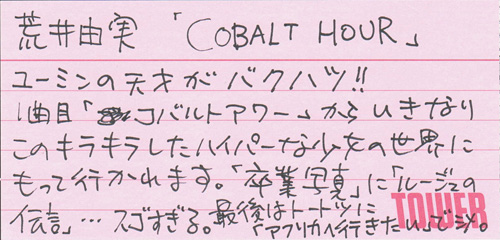 荒井由実 「COBALT HOUR」
ユーミンの天才がバクハツ!!
1曲目「コバルトアワー」からいきなり
このキラキラしたハイパーな少女の世界に
もって行かれます。「卒業写真」に「ルージュの
伝言」…スゴすぎる。最後はトートツに
「アフリカへ行きたい」でシメ。
TOWER